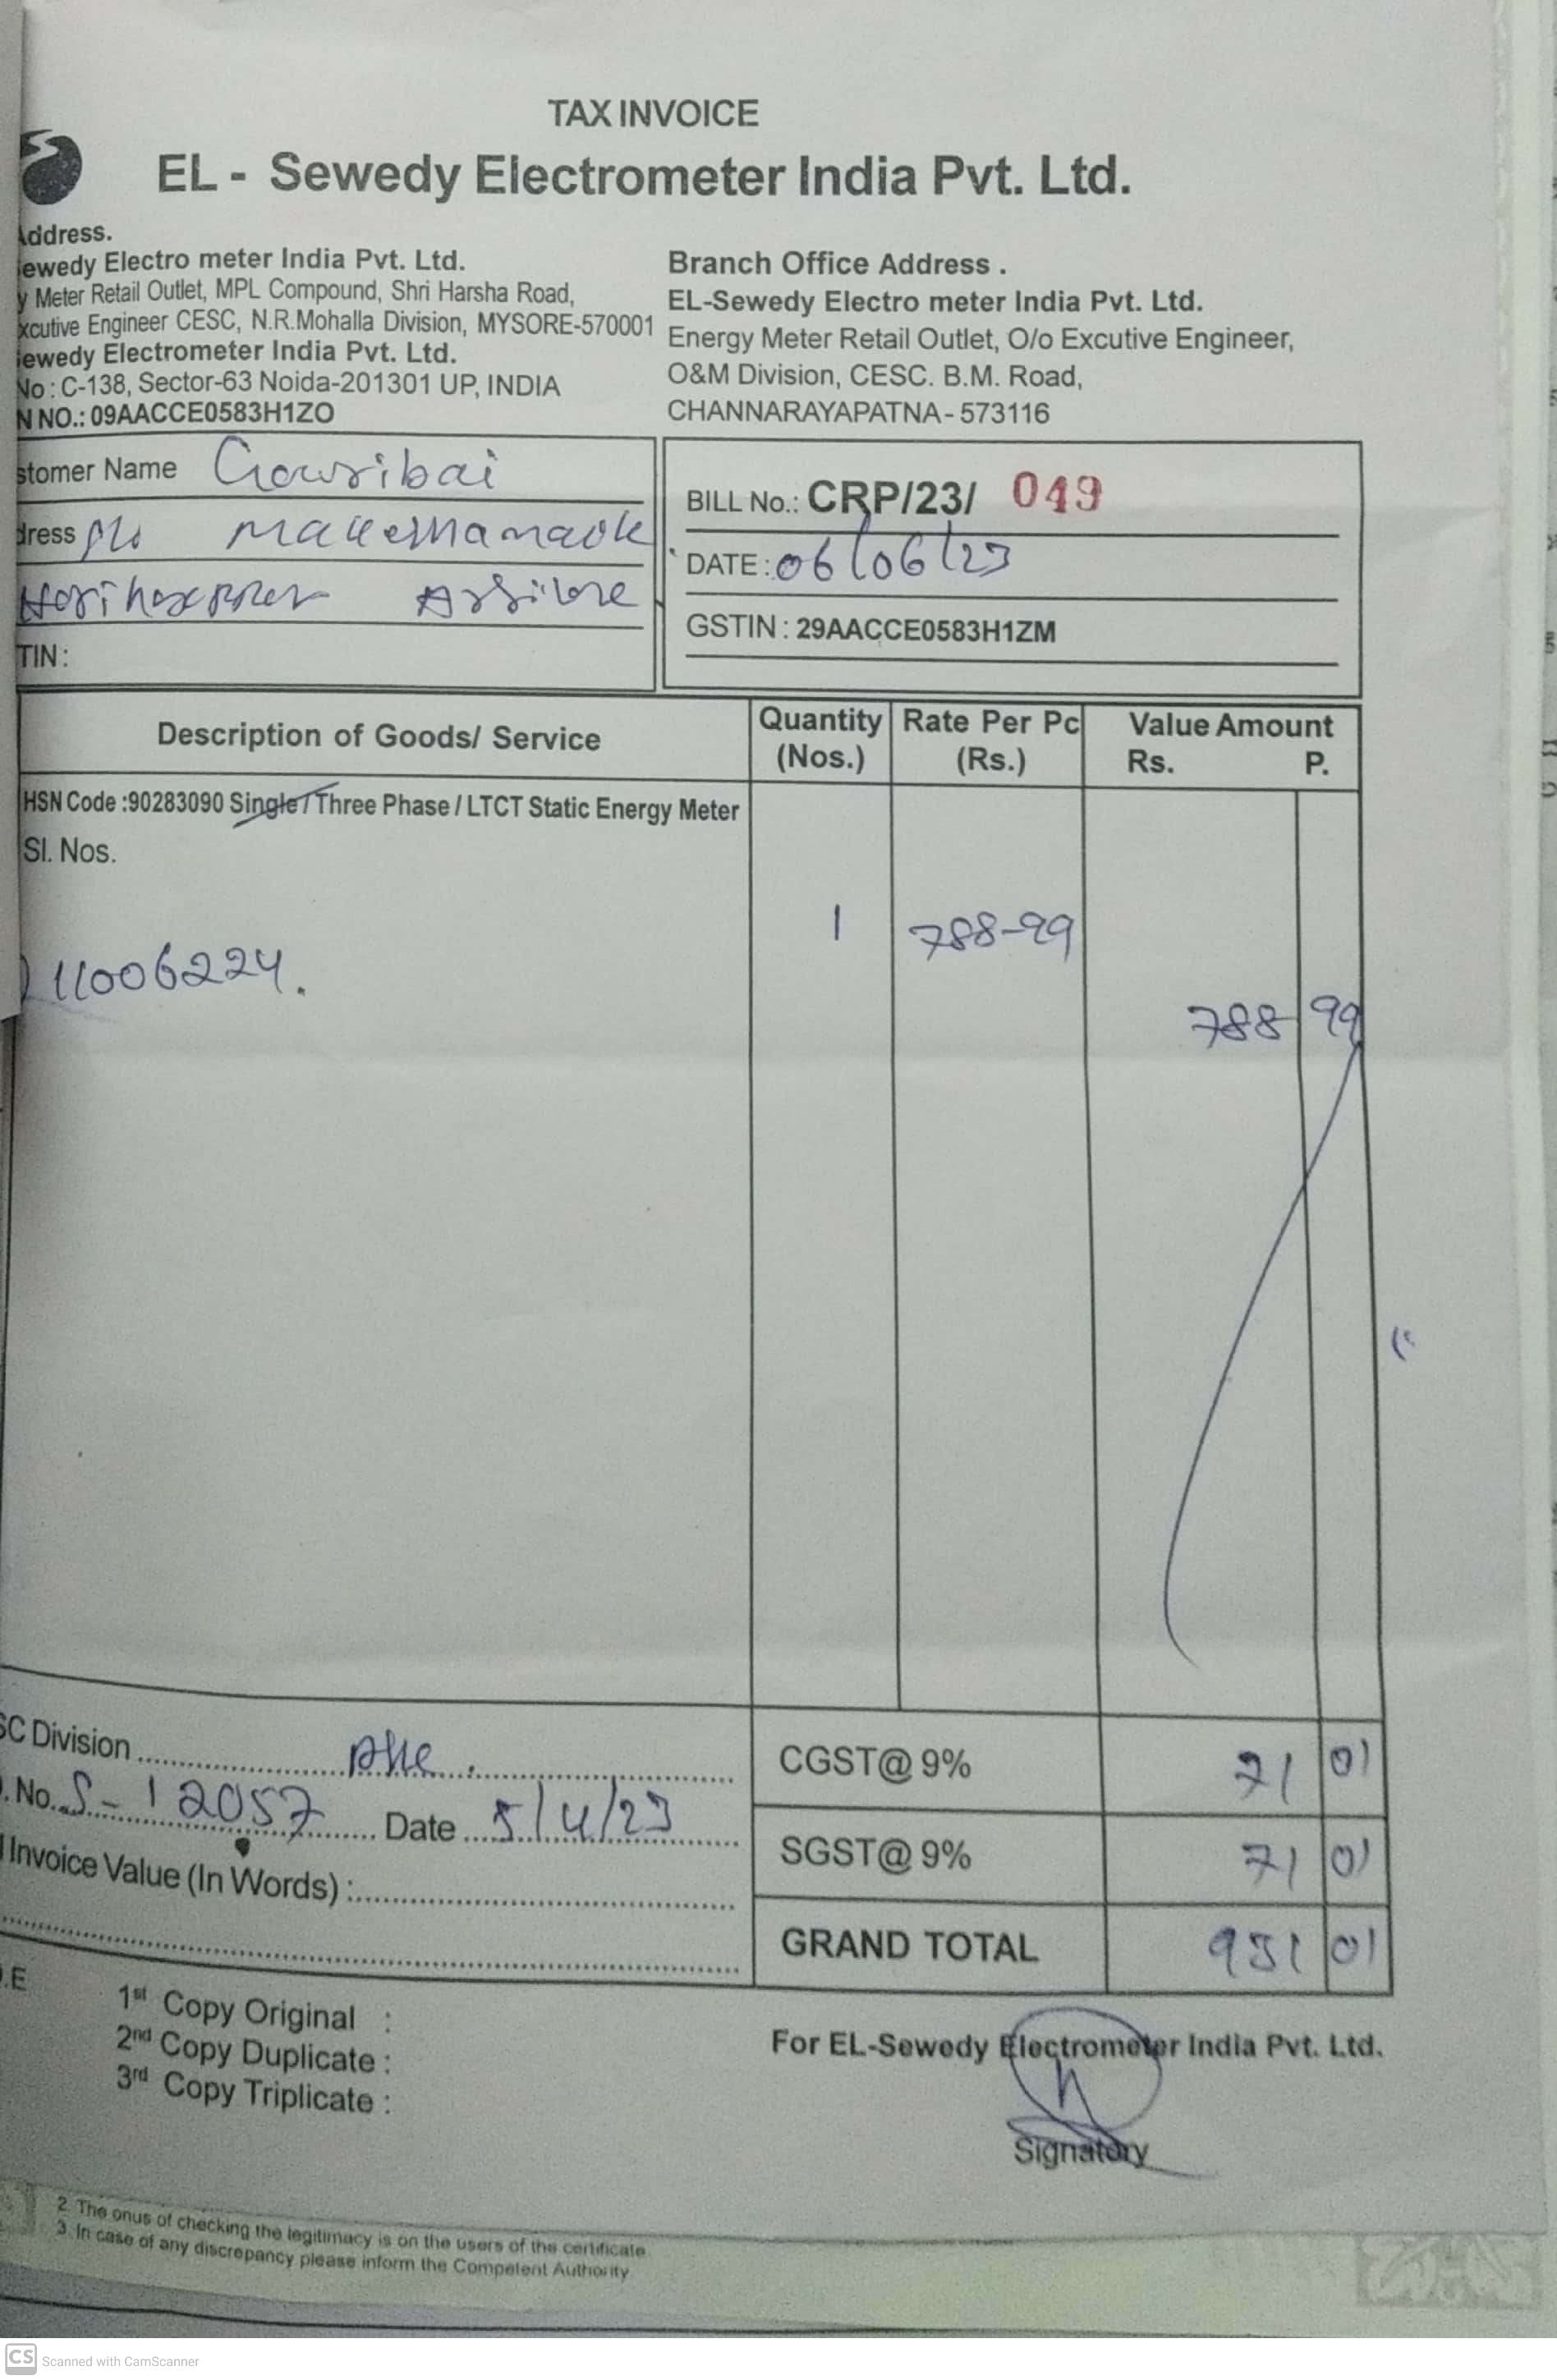 TAX INVOICE
EL - Sewedy Electrometer India Pvt. Ltd.
Address.
ewedy Electro meter India Pvt. Ltd.
y Meter Retail Outlet, MPL Compound, Shri Harsha Road,
xcutive Engineer CESC, N.R.Mohalla Division, MYSORE-570001
ewedy Electrometer India Pvt. Ltd.
No : C-138, Sector-63 Noida-201301 UP, INDIA
N NO.: 09AACCE0583H1ZO
Branch Office Address .
EL-Sewedy Electro meter India Pvt. Ltd.
Energy Meter Retail Outlet, O/o Excutive Engineer,
O&M Division, CESC. B.M. Road,
CHANNARAYAPATNA - 573116
stomer Name Gowribai
dress
TIN :
BILL No.: CRP/23/ 049
DATE : 06/06/23
GSTIN : 29AACCE0583H1ZM
Description of Goods/ Service Quantity (Nos.) Rate Per Pc (Rs.) Value Amount Rs. P.
HSN Code :90283090 Single / Three Phase / LTCT Static Energy Meter
Sl. Nos.
1 788-99
11006224.
788 99
SC Division
CGST@ 9% 71 01
. No. S-12057 Date 5/4/23
SGST@ 9% 71 01
l Invoice Value (In Words) :
GRAND TOTAL 931 01
.E
1st Copy Original :
2nd Copy Duplicate :
3rd Copy Triplicate :
For EL-Sewedy Electrometer India Pvt. Ltd.
Signatory
2. The onus of checking the legitimacy is on the users of the certificate
3. In case of any discrepancy please inform the Competent Authority
CS Scanned with CamScanner